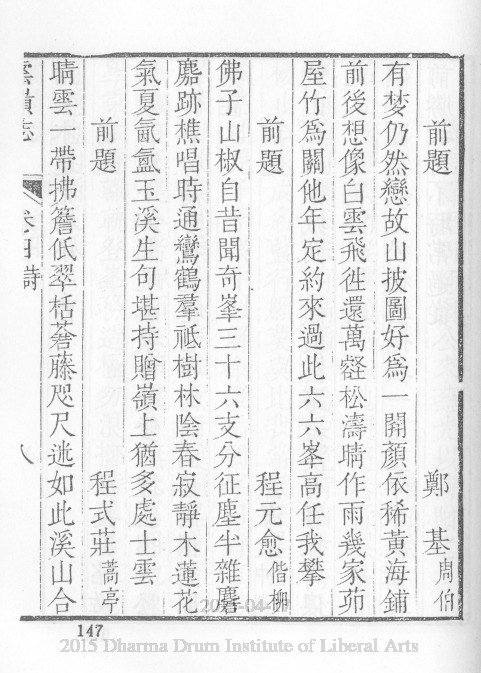 前題　鄭基 周伯
有夢仍然戀故山披圖好爲一開顏依稀黃海鋪
前後想像白雲飛徃還萬壑松濤晴作雨幾家茆
屋竹爲關他年定約來過此六六峯高任我攀
前題　程元愈 偕柳
佛子山椒自昔聞奇峯三十六支分征塵半雜麏
麚跡樵唱時通鸞鶴羣祗樹林陰春寂靜木蓮花
氣夏氤氳玉溪生句堪持贈嶺上猶多處士雲
前題　程式莊 蒿亭
晴雲一帶拂簷低翠栝蒼藤咫尺迷如此溪山合
卷四 詩
八
147
2015 Dharma Drum Institute of Liberal Arts